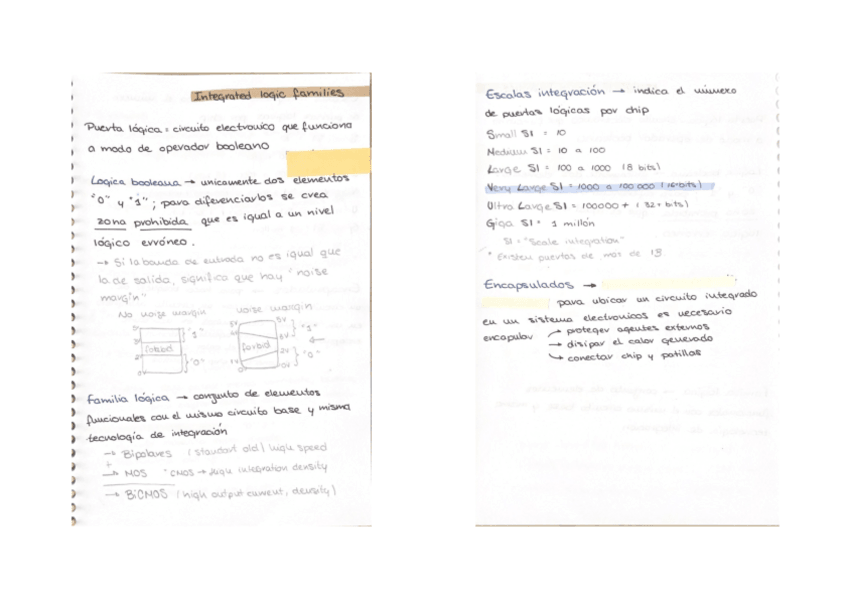 Integrated logic families
Puerta lógica = circuito electronico que funciona
a modo de operador booleano
Logica booleana → unicamente dos elementos
"0" y "1"; para diferenciarlos se crea
zona prohibida que es igual a un nivel
lógico erróneo.
→ Si la banda de entrada no es igual que
la de salida, significa que hay "noise
margin"
No noise margin
noise margin
"1"
forbid
"0"
0V
5V
"1"
forbid
2V
"0"
0V
Familia lógica → conjunto de elementos
funcionales con el mismo circuito base y misma
tecnología de integración
→ Bipolares (standart old) high speed
+
→ MOS "CMOS → high integration density
→ BiCMOS (high output current, density)
Escalas integración → indica el número
de puertas lógicas por chip
Small SI = 10
Medium SI = 10 a 100
Large SI = 100 a 1000 (8 bits)
Very Large SI = 1000 a 100 000 (16 bits)
Ultra Large SI = 100000 + (32+ bits)
Giga SI = 1 millón
SI = "Scale integration"
* Existen puertos de mas de 13.
Encapsulados →
para ubicar un circuito integrado
en un sistema electronicos es necesario
encapular → proteger agentes externos
→ disipar el calor generado
→ conectar chip y patillas